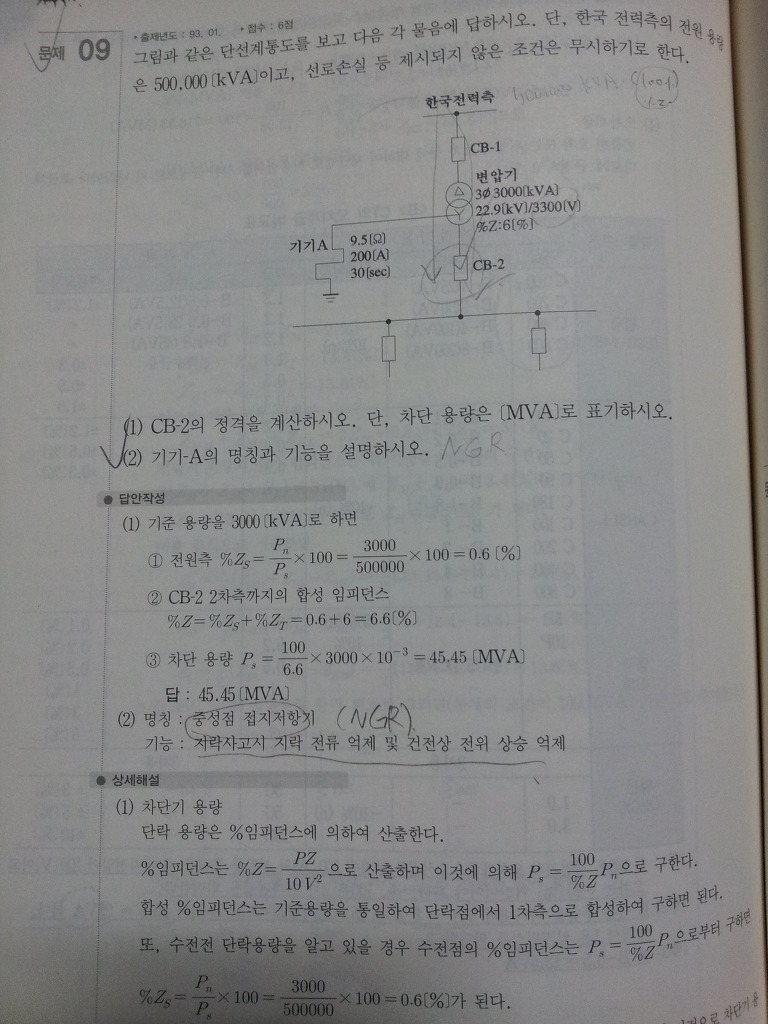 • 출제년도 : 93. 01. • 점수 : 6점
문제 09 그림과 같은 단선계통도를 보고 다음 각 물음에 답하시오. 단, 한국 전력측의 전원 용량
은 500,000 [kVA]이고, 선로손실 등 제시되지 않은 조건은 무시하기로 한다.
한국전력측
CB-1
변압기
3φ 3000[kVA]
22.9[kV]/3300[V]
%Z:6[%]
기기A
9.5[Ω]
200[A]
30[sec]
CB-2
(1) CB-2의 정격을 계산하시오. 단, 차단 용량은 [MVA]로 표기하시오.
(2) 기기-A의 명칭과 기능을 설명하시오. NGR
● 답안작성
(1) 기준 용량을 3000 [kVA]로 하면
① 전원측 %Z_S = P_n/P_s × 100 = 3000/500000 × 100 = 0.6 [%]
② CB-2 2차측까지의 합성 임피던스
%Z = %Z_S + %Z_T = 0.6 + 6 = 6.6[%]
③ 차단 용량 P_s = 100/6.6 × 3000 × 10⁻³ = 45.45 [MVA]
답 : 45.45 [MVA]
(2) 명칭 : 중성점 접지저항기 (NGR)
기능 : 지락사고시 지락 전류 억제 및 건전상 전위 상승 억제
● 상세해설
(1) 차단기 용량
단락 용량은 %임피던스에 의하여 산출한다.
%임피던스는 %Z = PZ/10V² 으로 산출하며 이것에 의해 P_s = 100/%Z P_n으로 구한다.
합성 %임피던스는 기준용량을 통일하여 단락점에서 1차측으로 합성하여 구하면 된다.
또, 수전전 단락용량을 알고 있을 경우 수전점의 %임피던스는 P_s = 100/%Z P_n으로부터 구하면
%Z_S = P_n/P_s × 100 = 3000/500000 × 100 = 0.6[%]가 된다.
으로 차단기 용